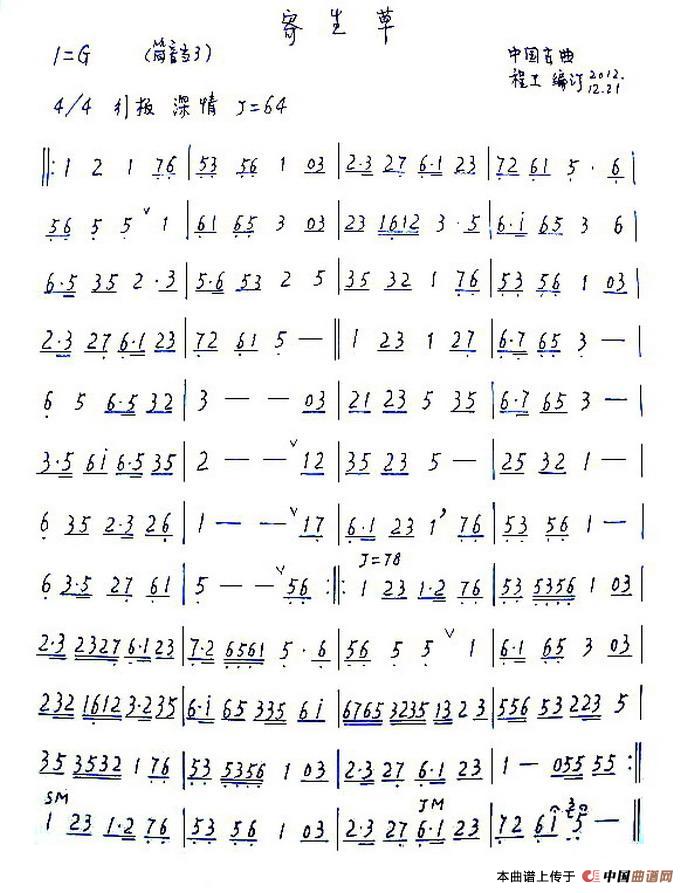 寄生草
1=G （筒音当3） 中国古曲
4/4 引板 深情 J=64 程工 编订 2012.12.21
‖: 1 2 1 76 | 53 56 1 03 | 2·3 27 6·1 23 | 72 61 5 · 6 |
56 5 5 ∨ 1 | 61 65 3 03 | 23 1612 3 · 5 | 6·i 65 3 6 |
6·5 35 2·3 | 5·6 53 2 5 | 35 32 1 76 | 53 56 1 03 |
2·3 27 6·1 23 | 72 61 5 — ‖ 1 23 1 27 | 6·7 65 3 — |
6 5 6·5 32 | 3 — — 03 | 21 23 5 35 | 6·7 65 3 — |
3·5 6i 6·5 35 | 2 — — ∨ 12 | 35 23 5 — | 25 32 1 — |
6 35 2·3 26 | 1 — — ∨ 17 | 6·1 23 1 ’ 76 | 53 56 1 — |
J=78
6 3·5 27 61 | 5 — — ∨ 56 :‖: 1 23 1·2 76 | 53 5356 1 03 |
2·3 2327 6·1 23 | 7·2 6561 5 · 6 | 56 5 5 ∨ 1 | 6·1 65 3 03 |
232 1612 3·235 | 6·i 65 335 6i | 6765 3235 13 2 3 | 556 53 223 5 |
35 3532 1 76 | 53 5356 1 03 | 2·3 27 6·1 23 | 1 — 055 55 :‖
SM JM
1 23 1·2 76 | 53 56 1 03 | 2·3 27 6·1 23 | 72 6i 5 — ‖
本曲谱上传于 中国曲谱网